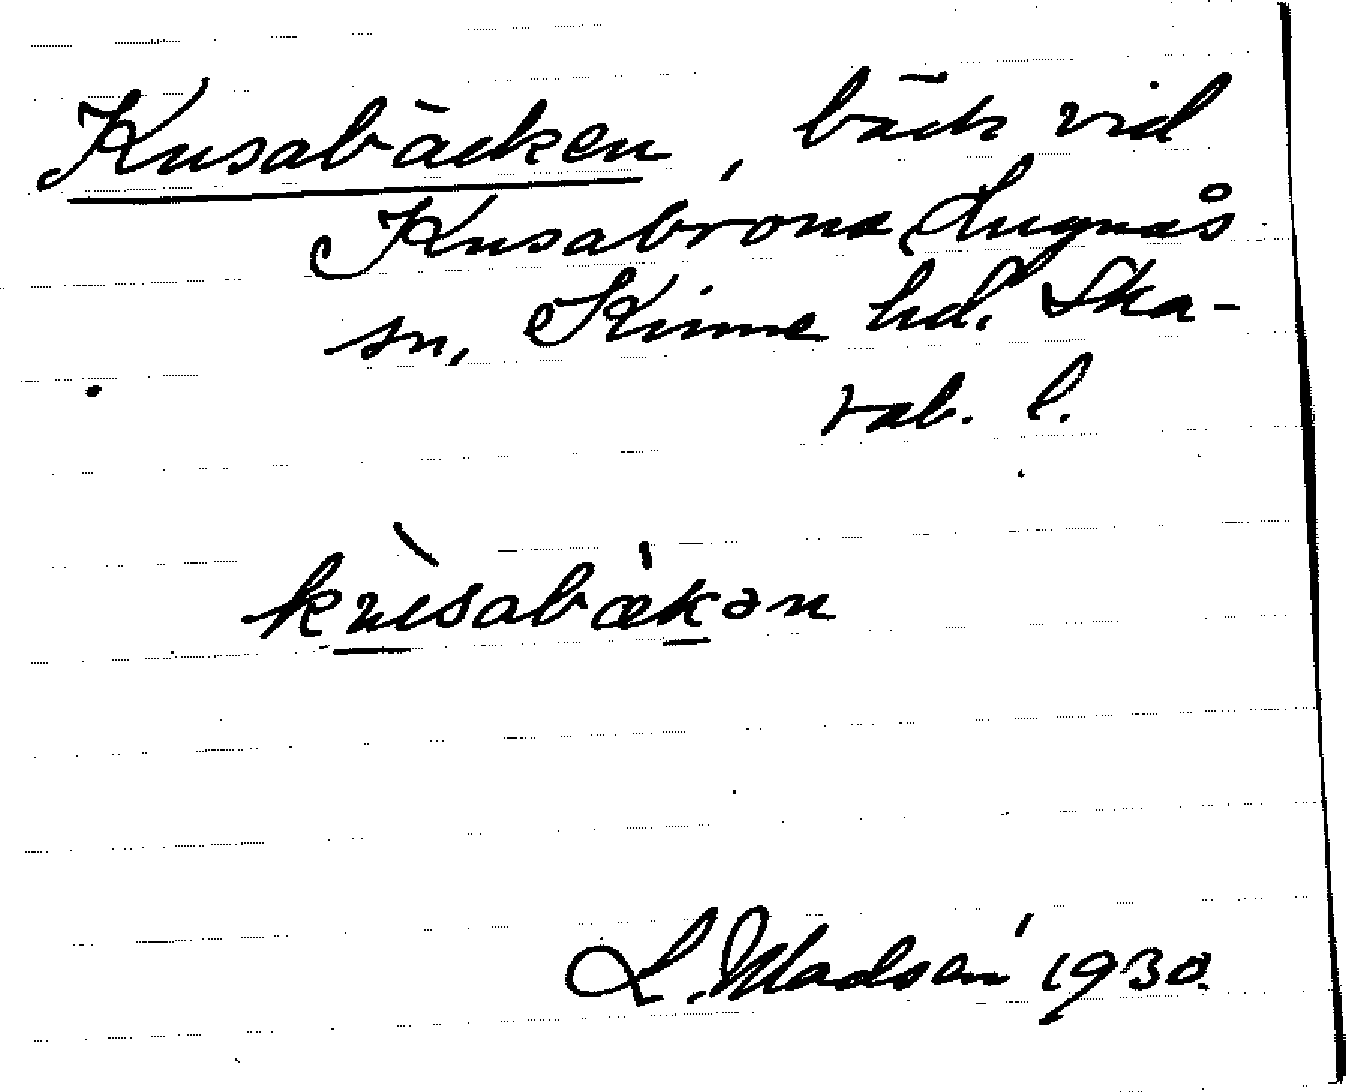 Kusabäcken, bäck vid
Kusabrona, Lugnås
sn, Kinne hd. Ska-
rab. l.
kusabækən
L. Madsén 1930.